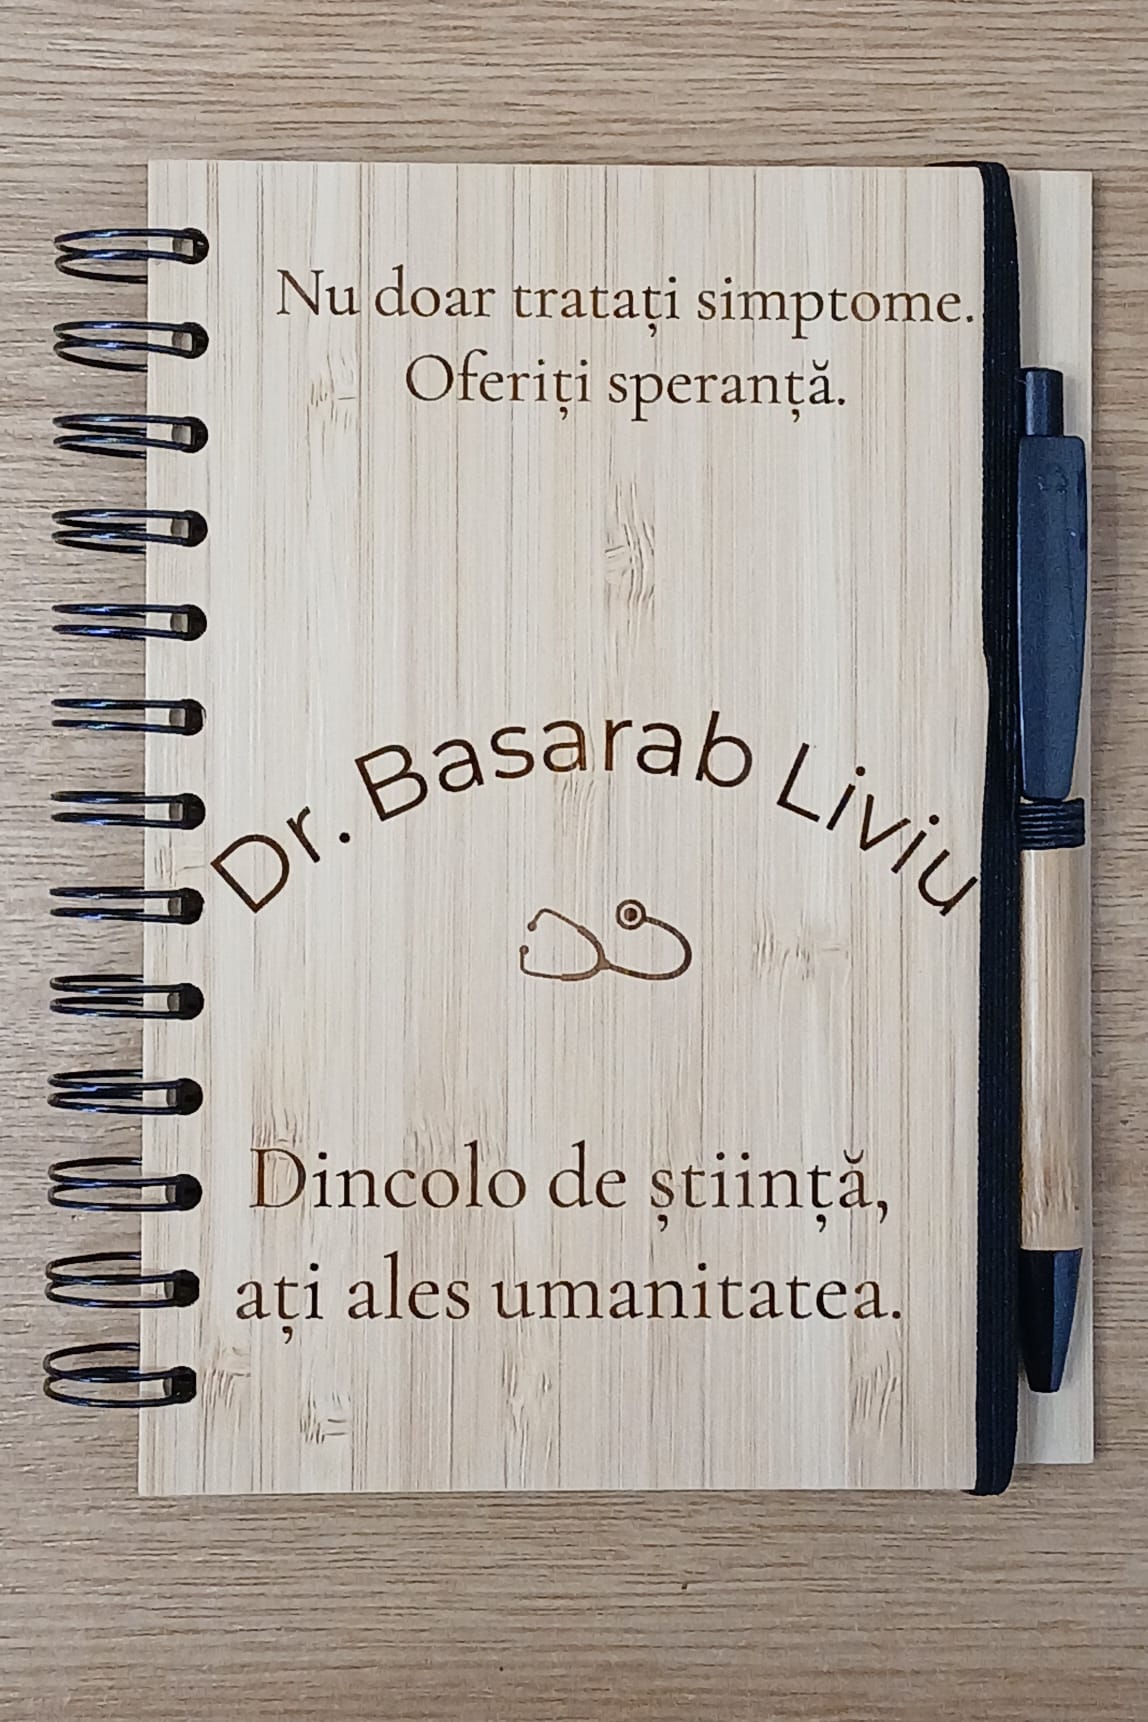 Nu doar tratați simptome.
Oferiți speranță.
Dr. Basarab Liviu
Dincolo de știință,
ați ales umanitatea.